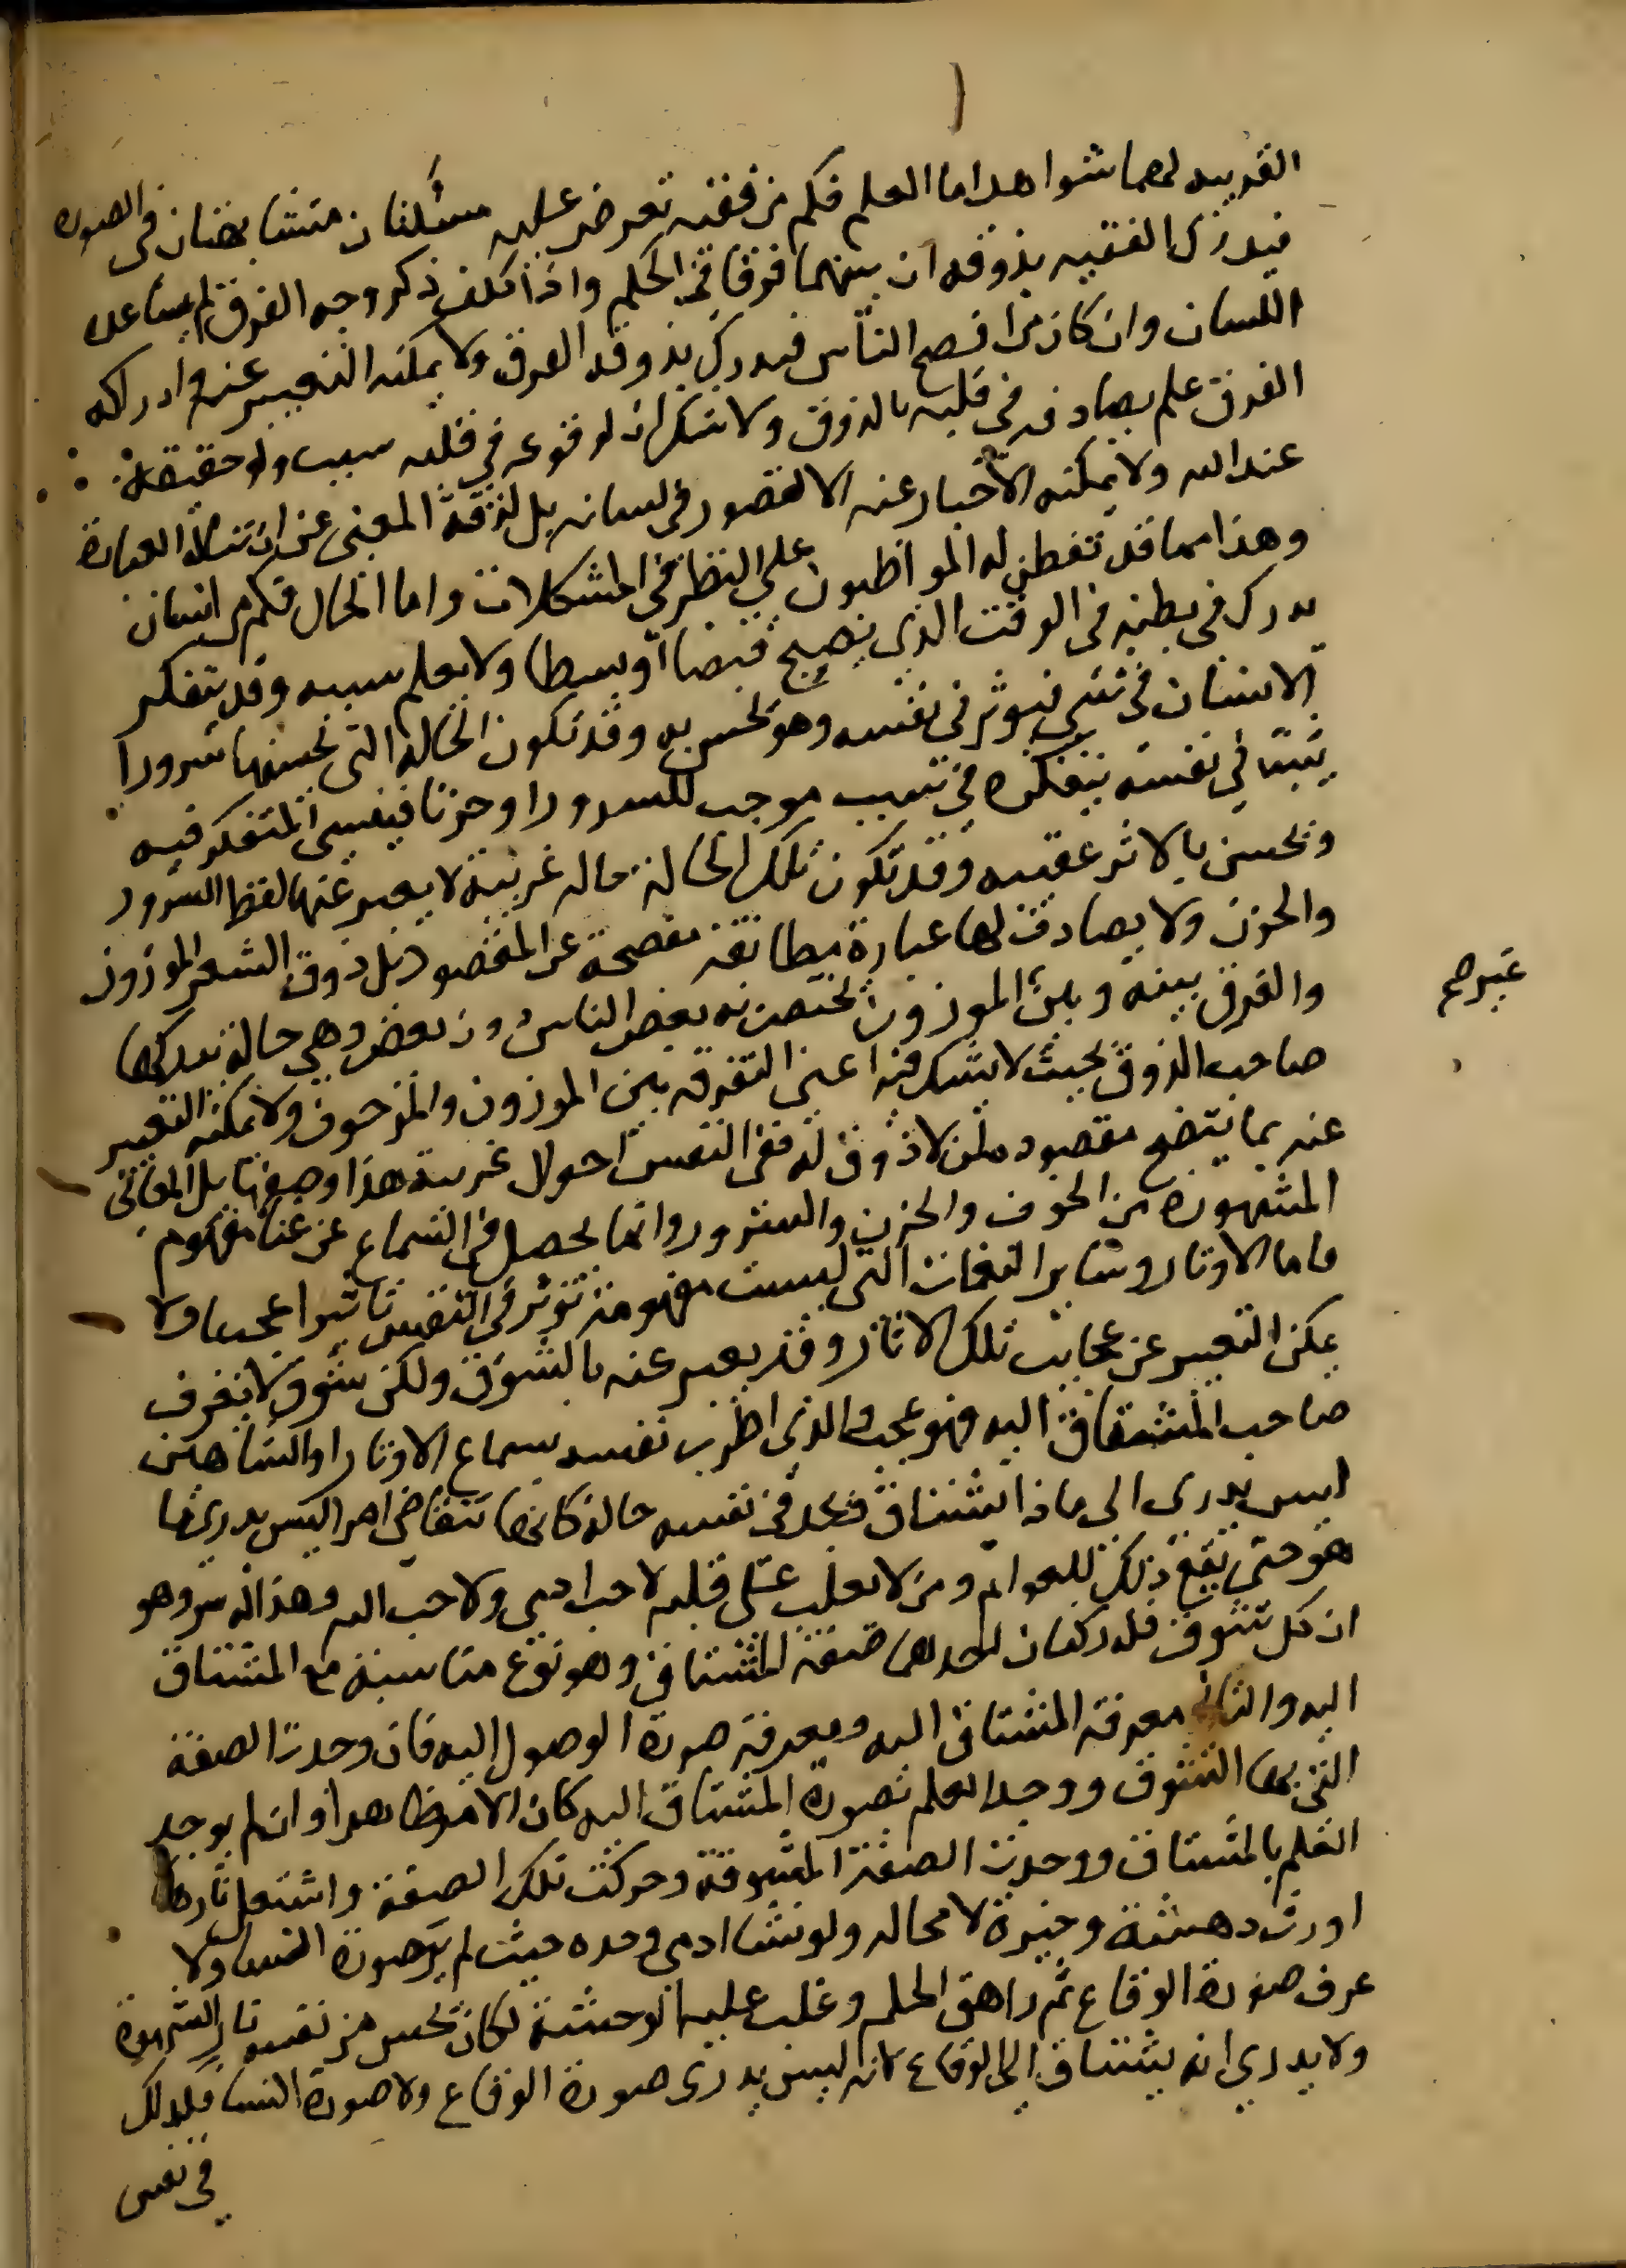 القريبه لهما شواهد اما العلم فكم من فقيه تعرض عليه مسئلتان متشابهتان فى الصوره
فيدرك الفقيه بذوقه ان بينهما فرقا في الحكم واذا كلف ذكر وجه الفرق لم يساعده
اللسان وان كان من افصح الناس فيدرك بذوقه الفرق ولا يمكنه التعبير عنه وادراكه
الفرق علم يصادفه في قلبه بالذوق ولا شك ان لوقوعه في قلبه سبب وله حقيقة
عند الله ولا يمكنه الاخبار عنه لا لقصور فى لسانه بل لدقة المعنى عن ان تناله العبارة
وهذا مما قد تفطن له المواظبون على النظر في المشكلات واما الحال فكم من انسان
يدرك في بطنه فى الوقت الذي يصبح قبضا او بسطا ولا يعلم سببه وقد يتفكر
الانسان في شي فيوثر في نفسه وهو يحس به وقد تكون الحالة التى يحسها سرورا
يثبت في نفسه بتفكره في سبب موجب للسرور او حزنا فينسى المتفكر فيه
ويحس بالاثر عقيبه وقد تكون تلك الحالة حاله غريبة لا يعبر عنها لفظ السرور
والحزن ولا يصادف لها عبارة مطابقة مفصحة عن المقصود بل ذوق الشعر الموزون
والفرق بينه وبين الموزون يختص به بعض الناس دون بعض وهي حالة يدركها
غيرهم
صاحب الذوق بحيث لا يشك فيه اعنى التفرقه بين الموزون والمزحوف ولا يمكنه التعبير
عنه بما يتضح مقصوده لمن لا ذوق له ففى النفس احوال غريبة هذا وصفها بل المعانى
المشهورة من الخوف والحزن والسرور وانما يحصل في السماع عن غناء مفهوم
فاما الاوتار وساير النغمات التي ليست مفهومة تؤثر في النفس تاثيرا عجيبا ولا
يمكن التعبير عن عجايب تلك الاثار وقد يعبر عنه بالشوق ولكن شوق لا يعرف
صاحبه المشتاق اليه فهو عجب والذى اطرب نفسه بسماع الاوتار او الشاهين
ليس يدرى الى ماذا يشتاق فيجد في نفسه حالة كانها تتقاضى امرا ليس يدرى ما
هو حتى يقع ذلك للعوام ومن لا يغلب على قلبه لا حب ادمى ولا حب الله وهذا له سر وهو
ان كل شوق فله ركنان احدهما صفة المشتاق وهو نوع مناسبة مع المشتاق
اليه والثانى معرفة المشتاق اليه ومعرفة صورة الوصول اليه فان وجدت الصفة
التي بها الشوق ووجد العلم بصورة المشتاق اليه كان الامر ظاهرا وان لم يوجد
العلم بالمشتاق ووجدت الصفة المشوقة وحركت تلك الصفة واشتعل نارها
اورث دهشة وحيرة لا محاله ولو نشا ادمى وحده حيث لم ير صورة النسا ولا
عرف صورة الوقاع ثم راهق الحلم وغلب عليه الوحشة لكان يحس من نفسه نار الشهوة
ولا يدري انه يشتاق الى الوقاع لانه ليس يدرى صورة الوقاع ولا صورة النسا فكذلك
في نفس